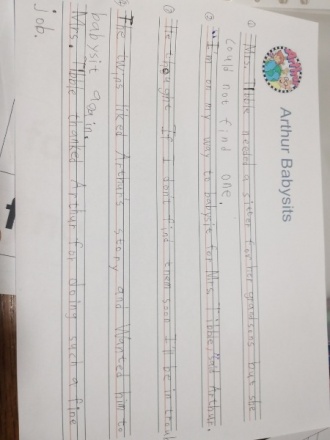 Arthur Babysits
① Mrs. Tibble needed a sitter for her grandsons but she
could not find one.
② "I'm on my way to babysit for Mrs. Tibble," said Arthur.
③ He thought If I don't find them soon I'll be in troubl
The twins liked Arthur's story and Wanted him to
babysit again.
Mrs. Tibble thanked Arthur for doing such a fine
job.